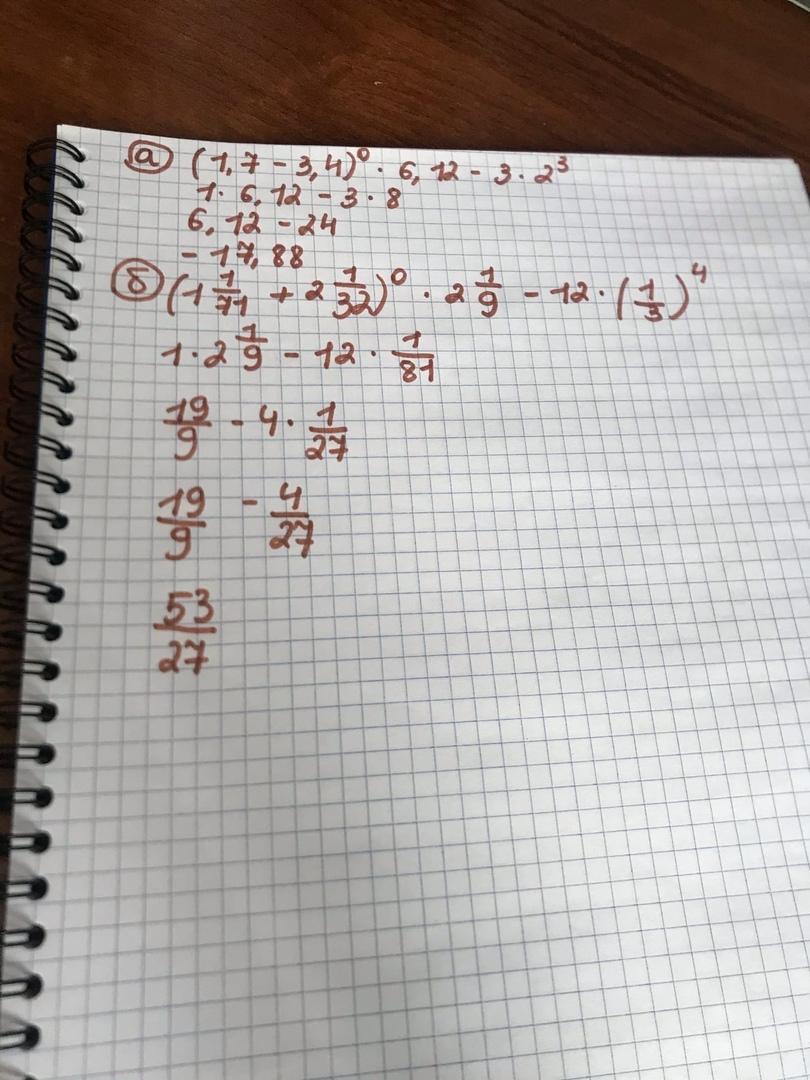 а) (1,7 - 3,4)⁰ · 6,12 - 3 · 2³
1 · 6,12 - 3 · 8
6,12 - 24
- 17,88
б) (1 1/71 + 2 1/32)⁰ · 2 1/9 - 12 · (1/3)⁴
1 · 2 1/9 - 12 · 1/81
19/9 - 4 · 1/27
19/9 - 4/27
53/27